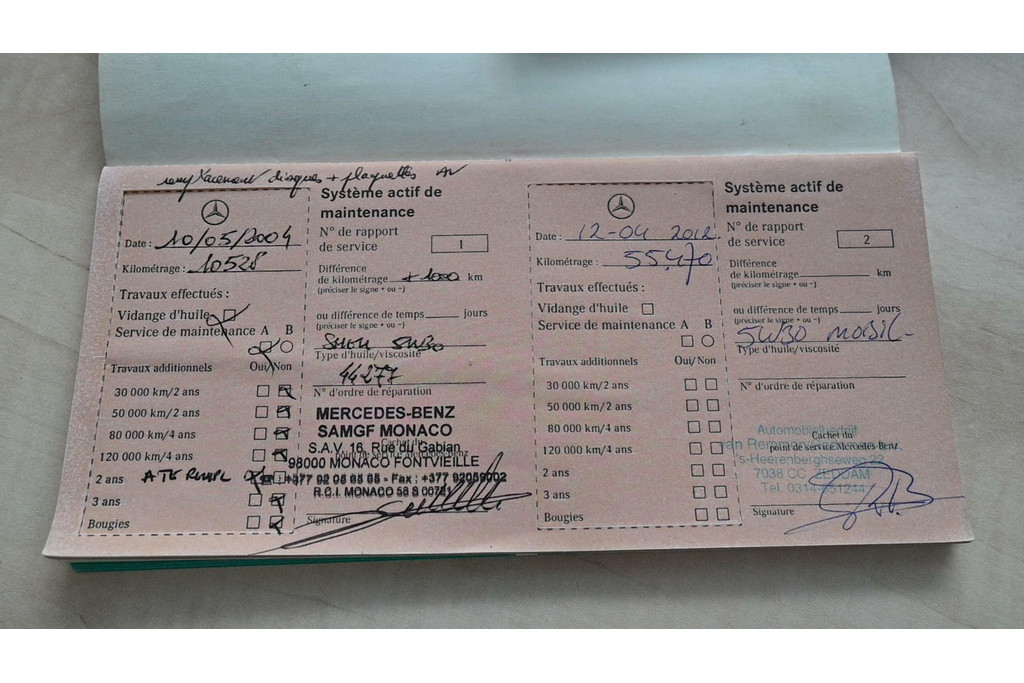 remplacement disques + plaquettes AV
Date : 10/05/2004
Kilométrage : 10528
Travaux effectués :
Vidange d'huile
Service de maintenance A B
Travaux additionnels Oui/Non
30 000 km/2 ans
50 000 km/2 ans
80 000 km/4 ans
120 000 km/4 ans
2 ans ATE REMPL
3 ans
Bougies
Système actif de
maintenance
N° de rapport
de service 1
Différence
de kilométrage + 1000 km
(préciser le signe + ou -)
ou différence de temps jours
(préciser le signe + ou -)
SHELL 5W30
Type d'huile/viscosité
44277
N° d'ordre de réparation
MERCEDES-BENZ
SAMGF MONACO
Cachet du
S.A.V. 16, Rue du Gabian
point de service Mercedes-Benz
98000 MONACO FONTVIEILLE
Fax : +377 92059002
R.C.I. MONACO 56 S 00721
Signature
Date : 12-04 2012
Kilométrage : 55,470
Travaux effectués :
Vidange d'huile
Service de maintenance A B
Travaux additionnels Oui/Non
30 000 km/2 ans
50 000 km/2 ans
80 000 km/4 ans
120 000 km/4 ans
2 ans
3 ans
Bougies
Système actif de
maintenance
N° de rapport
de service 2
Différence
de kilométrage km
(préciser le signe + ou -)
ou différence de temps jours
(préciser le signe + ou -)
5W30 MOBIL-
Type d'huile/viscosité
N° d'ordre de réparation
Automobielbedrijf
Cachet du
van Remmen
point de service Mercedes-Benz
's-Heerenberghseweg 22
7038 CC ZEDDAM
Tel. 0314-651244
Signature